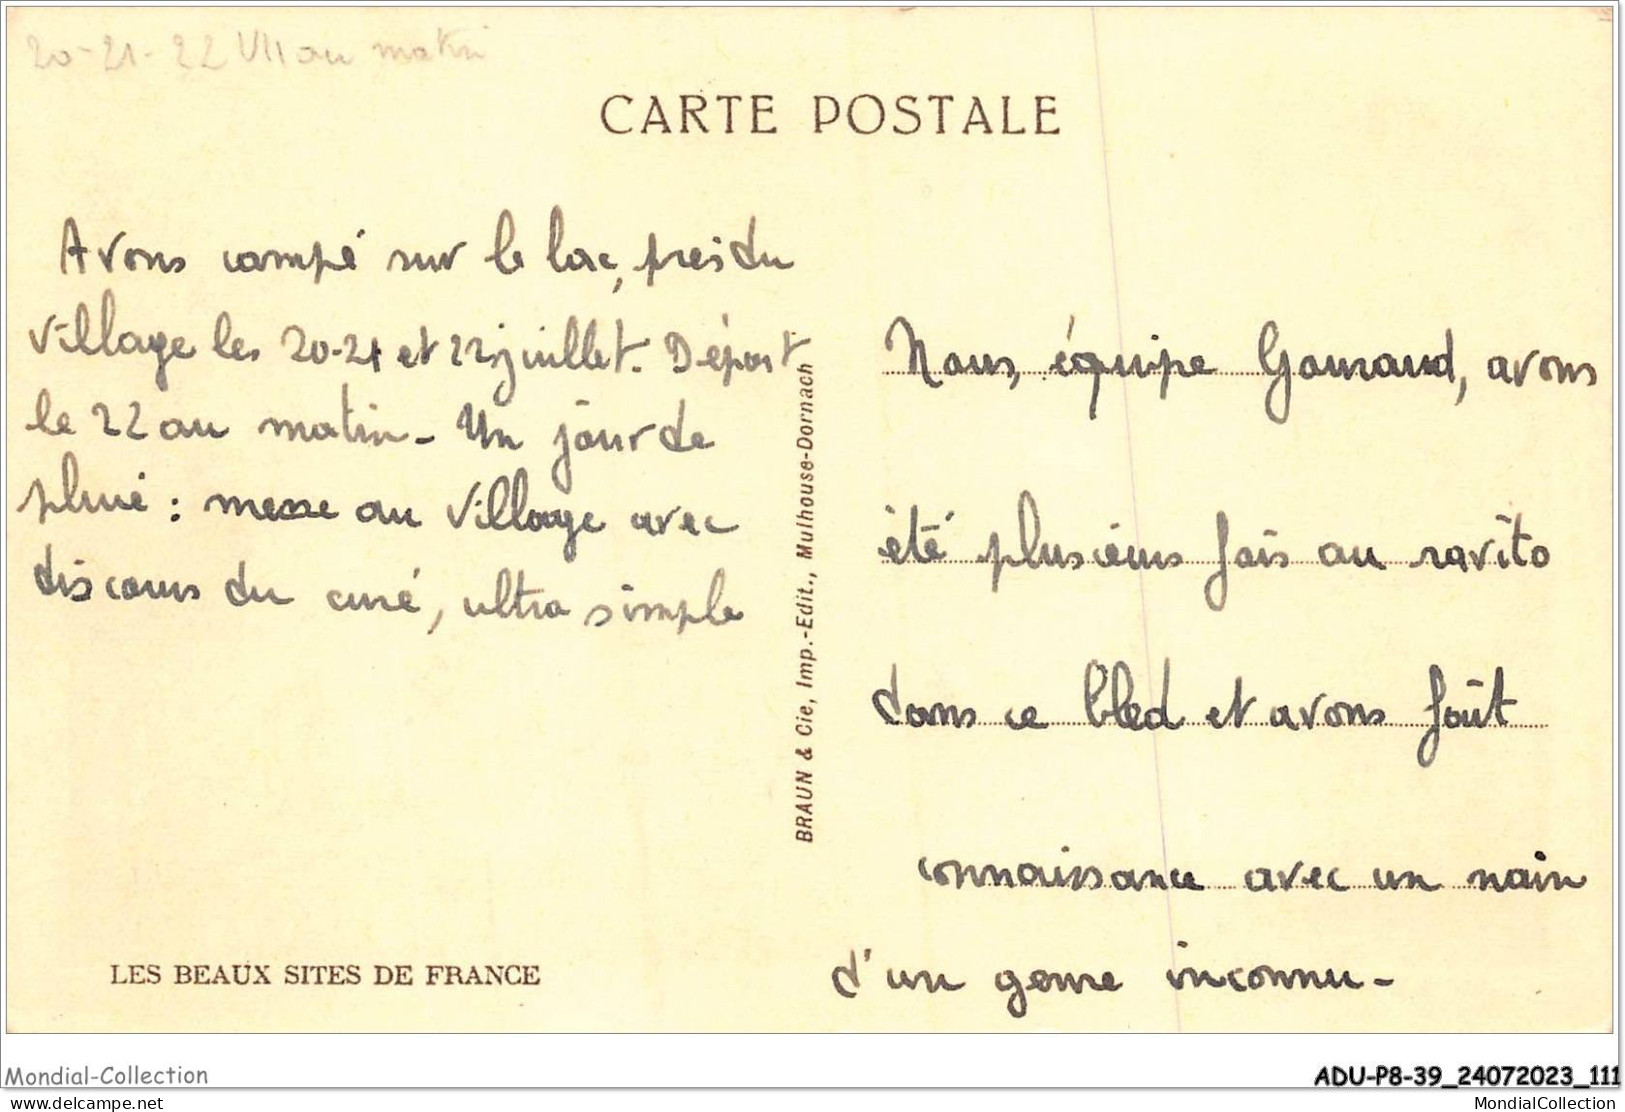 20-21-22 VII au matin
CARTE POSTALE
Avons campé sur le lac, près du
village les 20-21 et 22 juillet. Départ
le 22 au matin - Un jour de
pluie : messe au village avec
discours du curé, ultra simple
BRAUN & Cie, Imp.-Edit., Mulhouse-Dornach
Nous, équipe Gouraud, avons
été plusieurs fois au ravito
dans ce bled et avons fait
connaissance avec un nain
d'un genre inconnu -
LES BEAUX SITES DE FRANCE
Mondial-Collection
ADU-P8-39_24072023_111
delcampe.net
MondialCollection